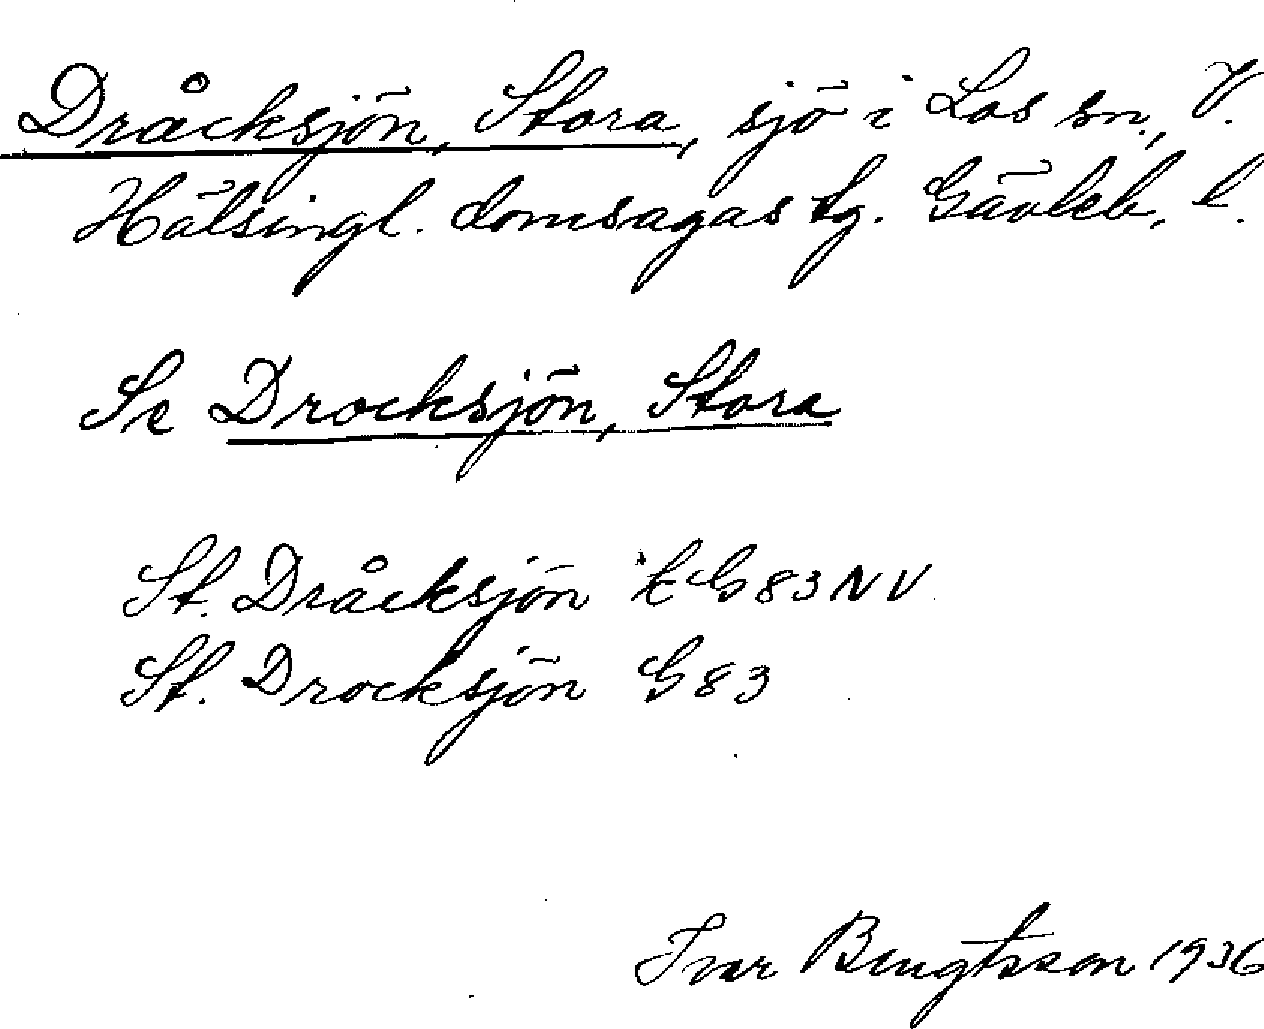 Dråcksjön, Stora, sjö i Los sn., V.
Hälsingl. domsagas tg. Gävleb. l.
Se Drocksjön, Stora
St. Dråcksjön EG83NV
St. Drocksjön G83
Ivar Bengtsson 1936